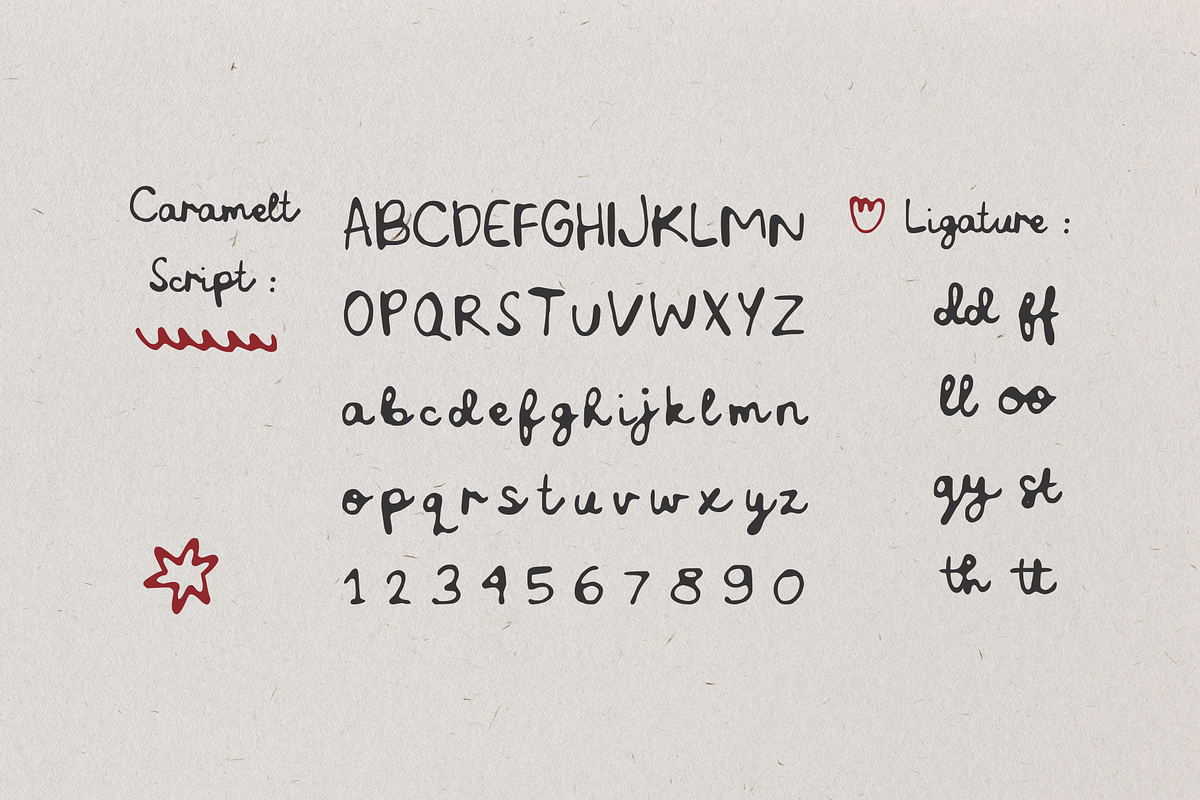 Caramelt
Script :
ABCDEFGHIJKLMN
OPQRSTUVWXYZ
abcdefghijklmn
opqrstuvwxyz
1234567890
Ligature :
dd ff
ll oo
gy st
th tt